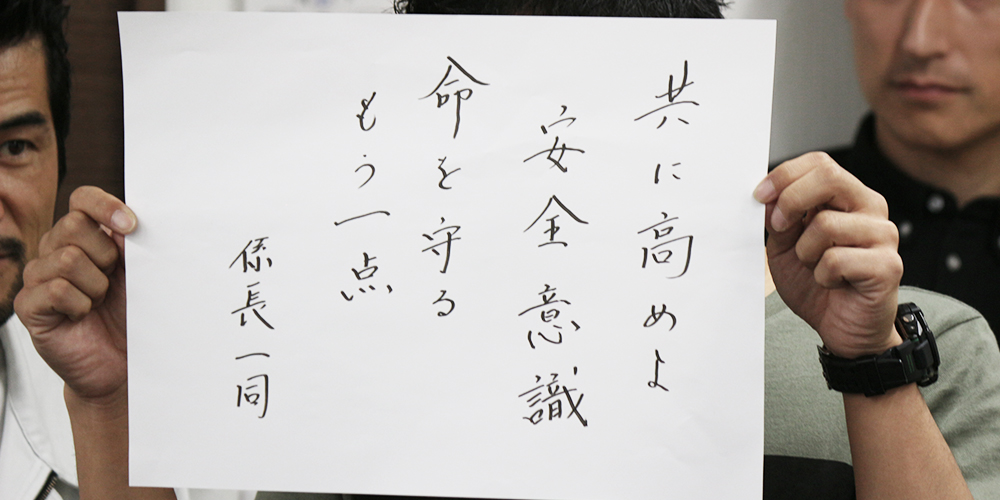 共に高めよ
安全意識
命を守る
もう一点
係長一同